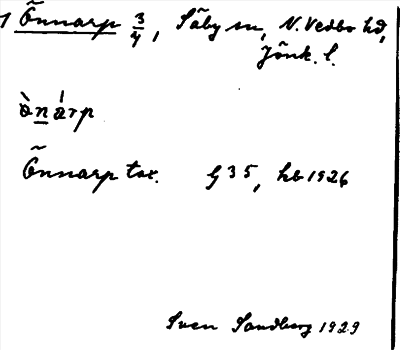 1 Önnarp 3/4, Säby sn, N. Vedbo hd,
Jönk. l.
ò̀nárp
Önnarp tax. G 35, hb 1926
Sven Sandberg 1929